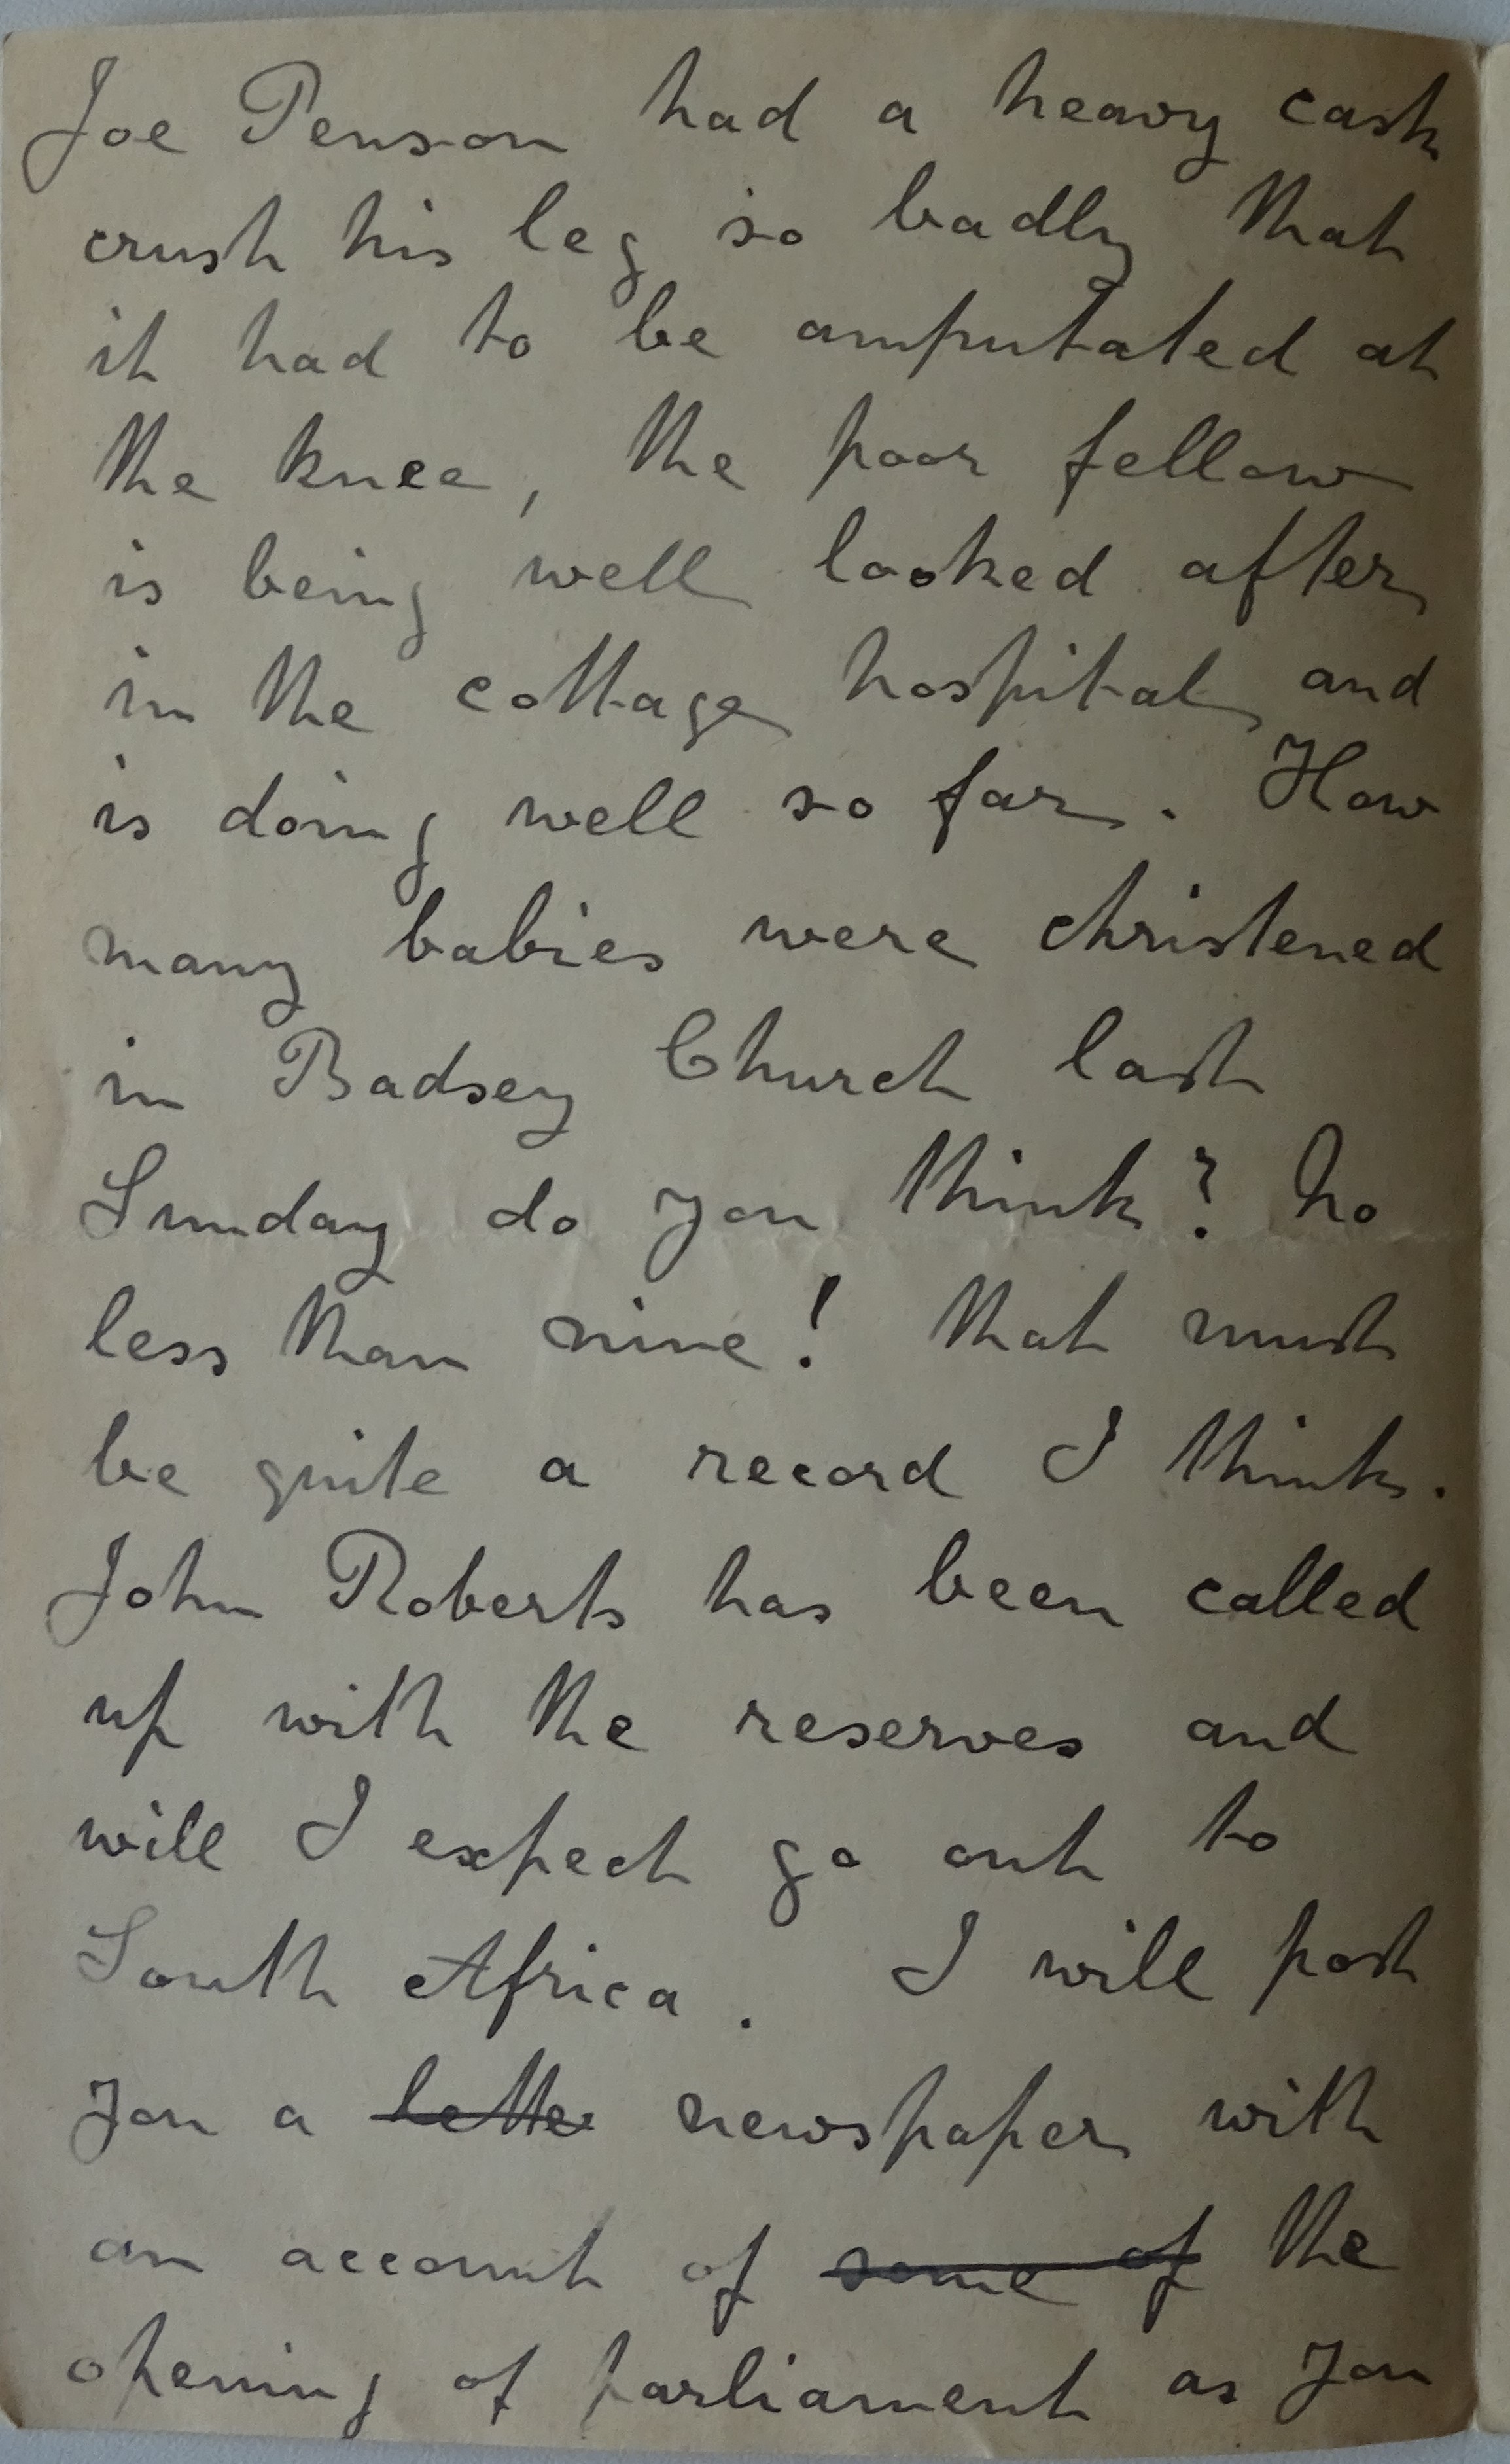 Joe Penson had a heavy cask
crush his leg so badly that
it had to be amputated at
the knee, the poor fellow
is being well looked after
in the cottage hospital and
is doing well so far. How
many babies were christened
in Badsey Church last
Sunday do you think? no
less than nine! that must
be quite a record I think.
John Roberts has been called
up with the reserves and
will I expect go out to
South Africa. I will post
you a lette newspaper with
an account of some of the
opening of parliament as you